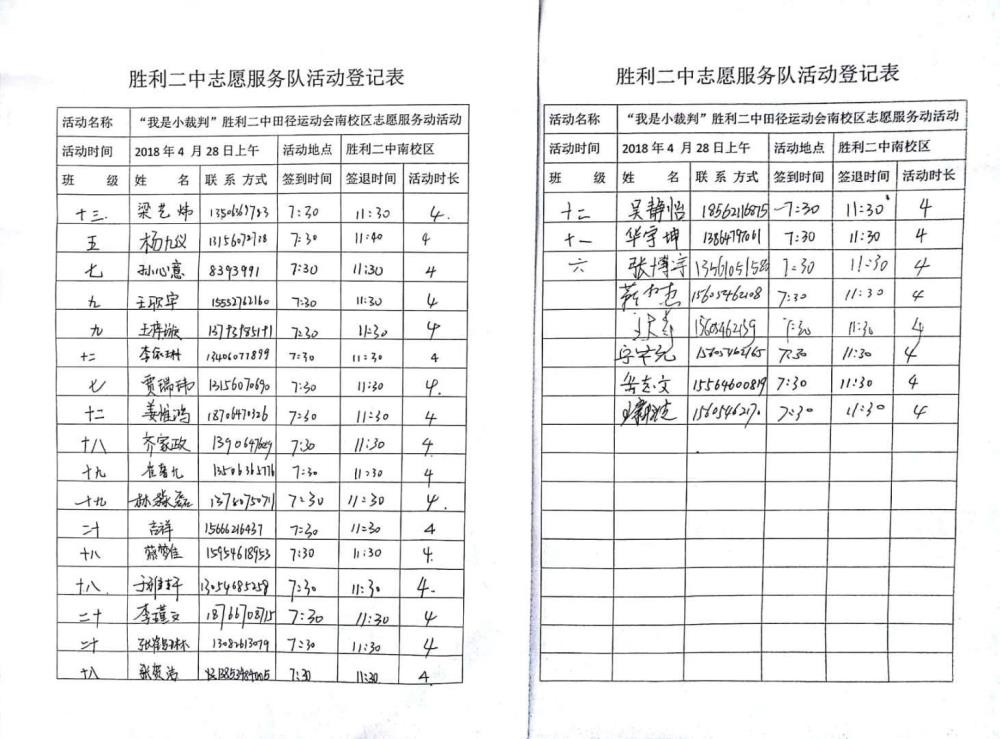 胜利二中志愿服务队活动登记表
活动名称 “我是小裁判”胜利二中田径运动会南校区志愿服务动活动
活动时间 2018 年 4 月 28 日上午 活动地点 胜利二中南校区
班 级 姓 名 联 系 方式 签到时间 签退时间 活动时长
十三. 梁艺炜 7:30 11:30 4.
五 杨九仪 7:30 11:40 4
七 孙心意 8393991 7:30 11:30 4
九 15552762160 7:30 11:30 4
九 7:30 11:30 4
十二 13406077899 7:30 11:30 4
七 贾瑞玮 13156070690 7:30 11:30 4.
十二 姜惟鸿 18706470326 7:30 11:30 4
十八 齐家政 7:30 11:30 4.
十九 13506362776 7:30 11:30 4
十九 林淼磊 7:30 11:30 4.
二十 吉祥 15666216437 7:30 11:30 4
十八 15954618953 7:30 11:30 4.
十八 13054685259 7:30 11:30 4.
二十 李瑾文 18766708715 7:30 11:30 4
二十 13082613079 7:30 11:30 4
十八 7:30 11:30 4.
胜利二中志愿服务队活动登记表
活动名称 “我是小裁判”胜利二中田径运动会南校区志愿服务动活动
活动时间 2018 年 4 月 28 日上午 活动地点 胜利二中南校区
班 级 姓 名 联 系 方式 签到时间 签退时间 活动时长
十二 吴静怡 18562116815 7:30 11:30 4
十一 华宇坤 13864797061 7:30 11:30 4
六 张博宇 7:30 11:30 4
15605462108 7:30 11:30 4
7:30 11:30 4
7:30 11:30 4
岳志文 15564600819 7:30 11:30 4
7:30 11:30 4